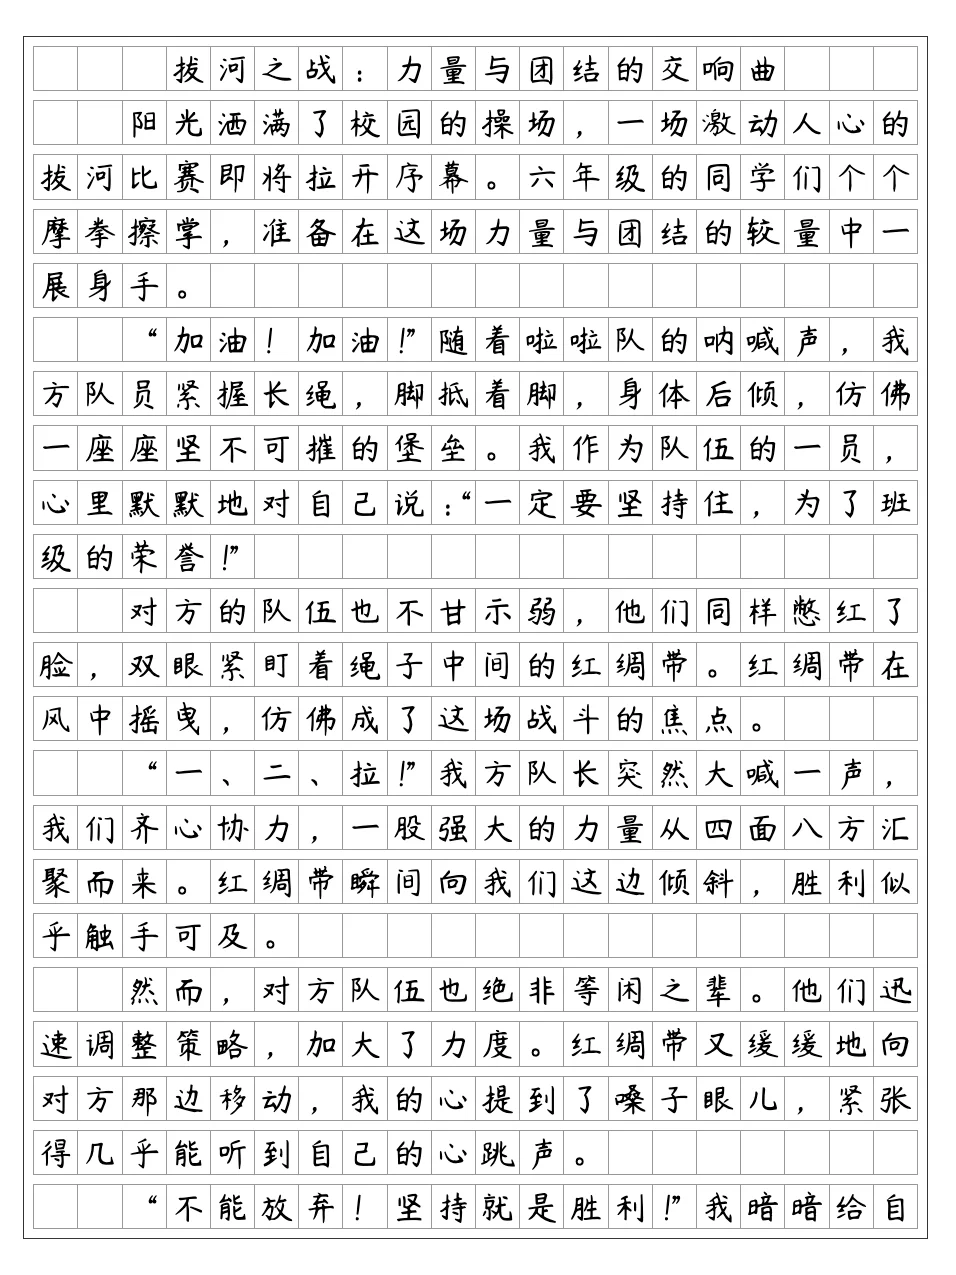 拔河之战：力量与团结的交响曲
阳光洒满了校园的操场，一场激动人心的
拔河比赛即将拉开序幕。六年级的同学们个个
摩拳擦掌，准备在这场力量与团结的较量中一
展身手。
“加油！加油！”随着啦啦队的呐喊声，我
方队员紧握长绳，脚抵着脚，身体后倾，仿佛
一座座坚不可摧的堡垒。我作为队伍的一员，
心里默默地对自己说：“一定要坚持住，为了班
级的荣誉！”
对方的队伍也不甘示弱，他们同样憋红了
脸，双眼紧盯着绳子中间的红绸带。红绸带在
风中摇曳，仿佛成了这场战斗的焦点。
“一、二、拉！”我方队长突然大喊一声，
我们齐心协力，一股强大的力量从四面八方汇
聚而来。红绸带瞬间向我们这边倾斜，胜利似
乎触手可及。
然而，对方队伍也绝非等闲之辈。他们迅
速调整策略，加大了力度。红绸带又缓缓地向
对方那边移动，我的心提到了嗓子眼儿，紧张
得几乎能听到自己的心跳声。
“不能放弃！坚持就是胜利！”我暗暗给自